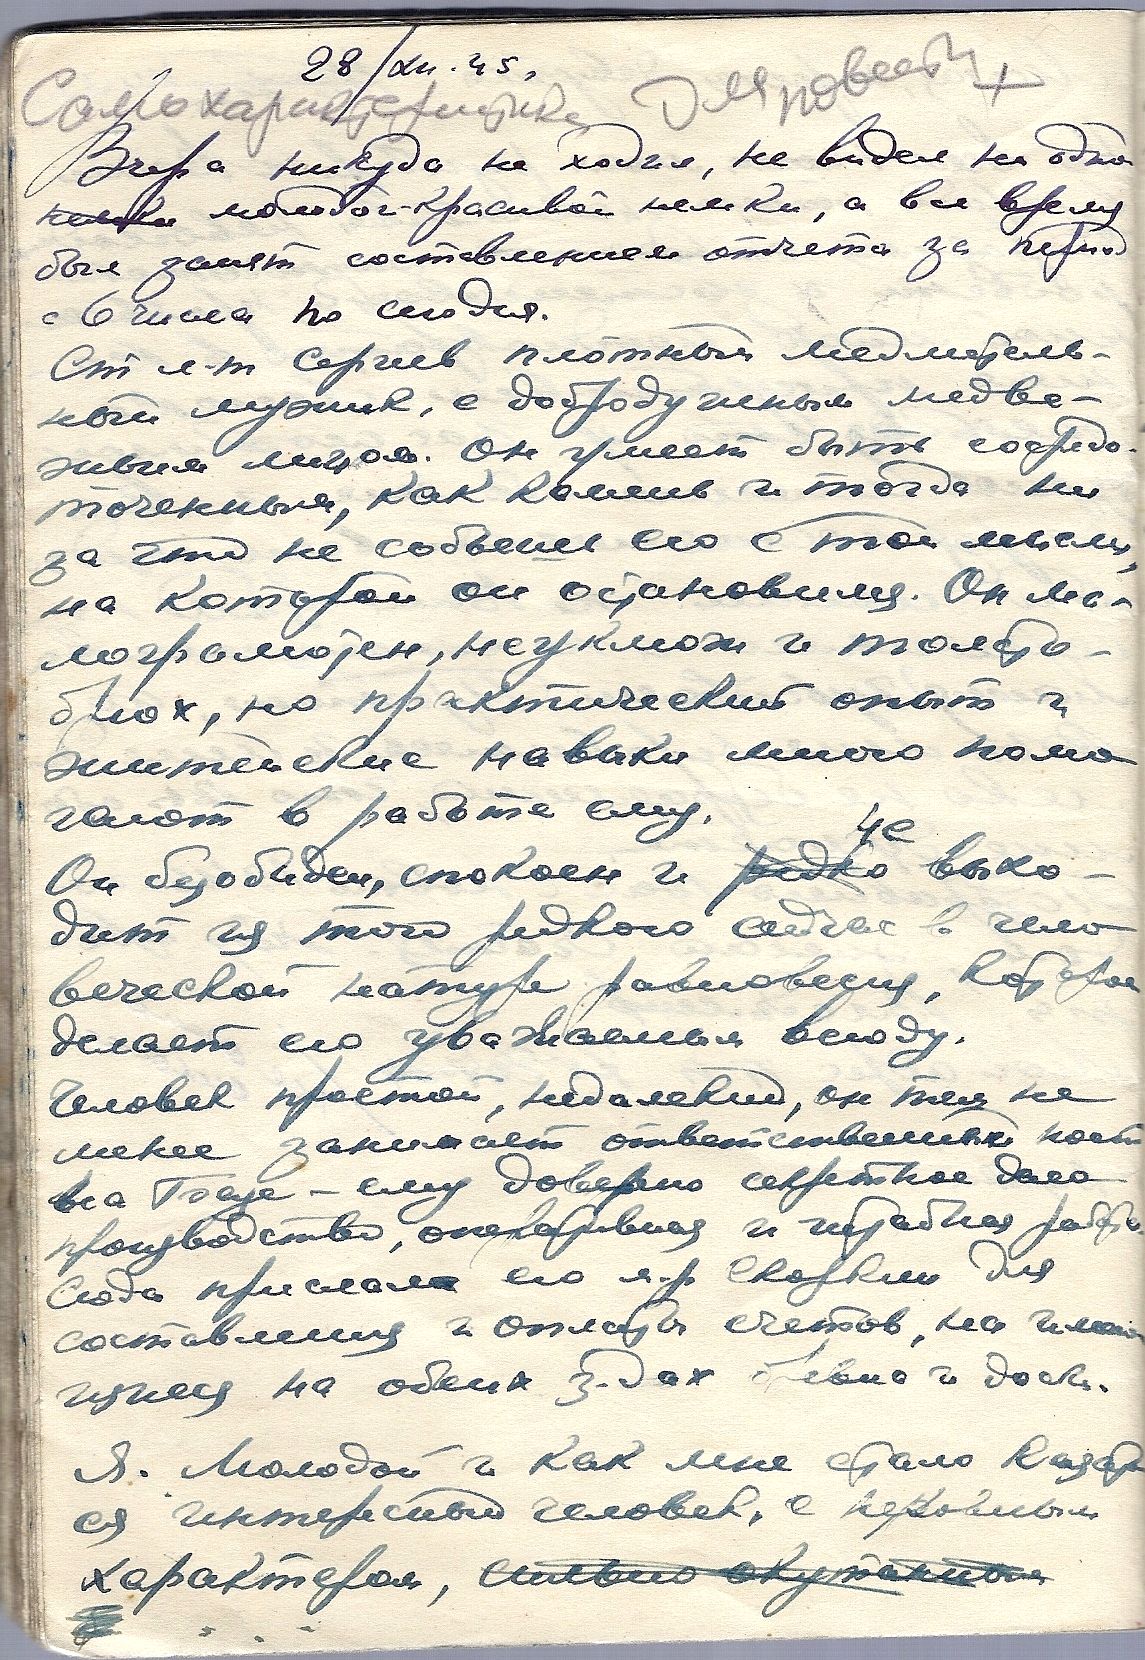 28/XII.45.
Самохарактеристика Для повести +
Вчера никуда не ходил, не видел ни одной
немки молодой-красивой немки, а все время
был занят составлением отчета за период
с 6 числа по сегодня.
Ст л-т Сергиев плотный медлитель-
ный мужик, с добродушным медве-
жьим лицом. Он умеет быть сосредо-
точенным, как камень и тогда ни
за что не собьешь его с той мысли,
на которой он остановился. Он ма-
лограмотен, неуклюж и толсто-
брюх, но практический опыт и
житейские навыки много помо
гают в работе ему.
не
Он безобиден, спокоен и редко выхо-
дит из того редкого сейчас в чело
веческой натуре равновесия, которое
делает его уважаемым всюду.
Человек простой, недалекий, он тем не
менее занимает ответственный пост
на базе – ему доверено секретное дело
производство, оперативная и штабная работа.
Сюда прислал его м-р Скоркин для
составления и оплаты счетов, на имею
щиеся на обеих з-дах бревна и доски.
Я. Молодой и как мне стало казать
ся интересный человек, с неровным
характером, сильно окутанным
. . .